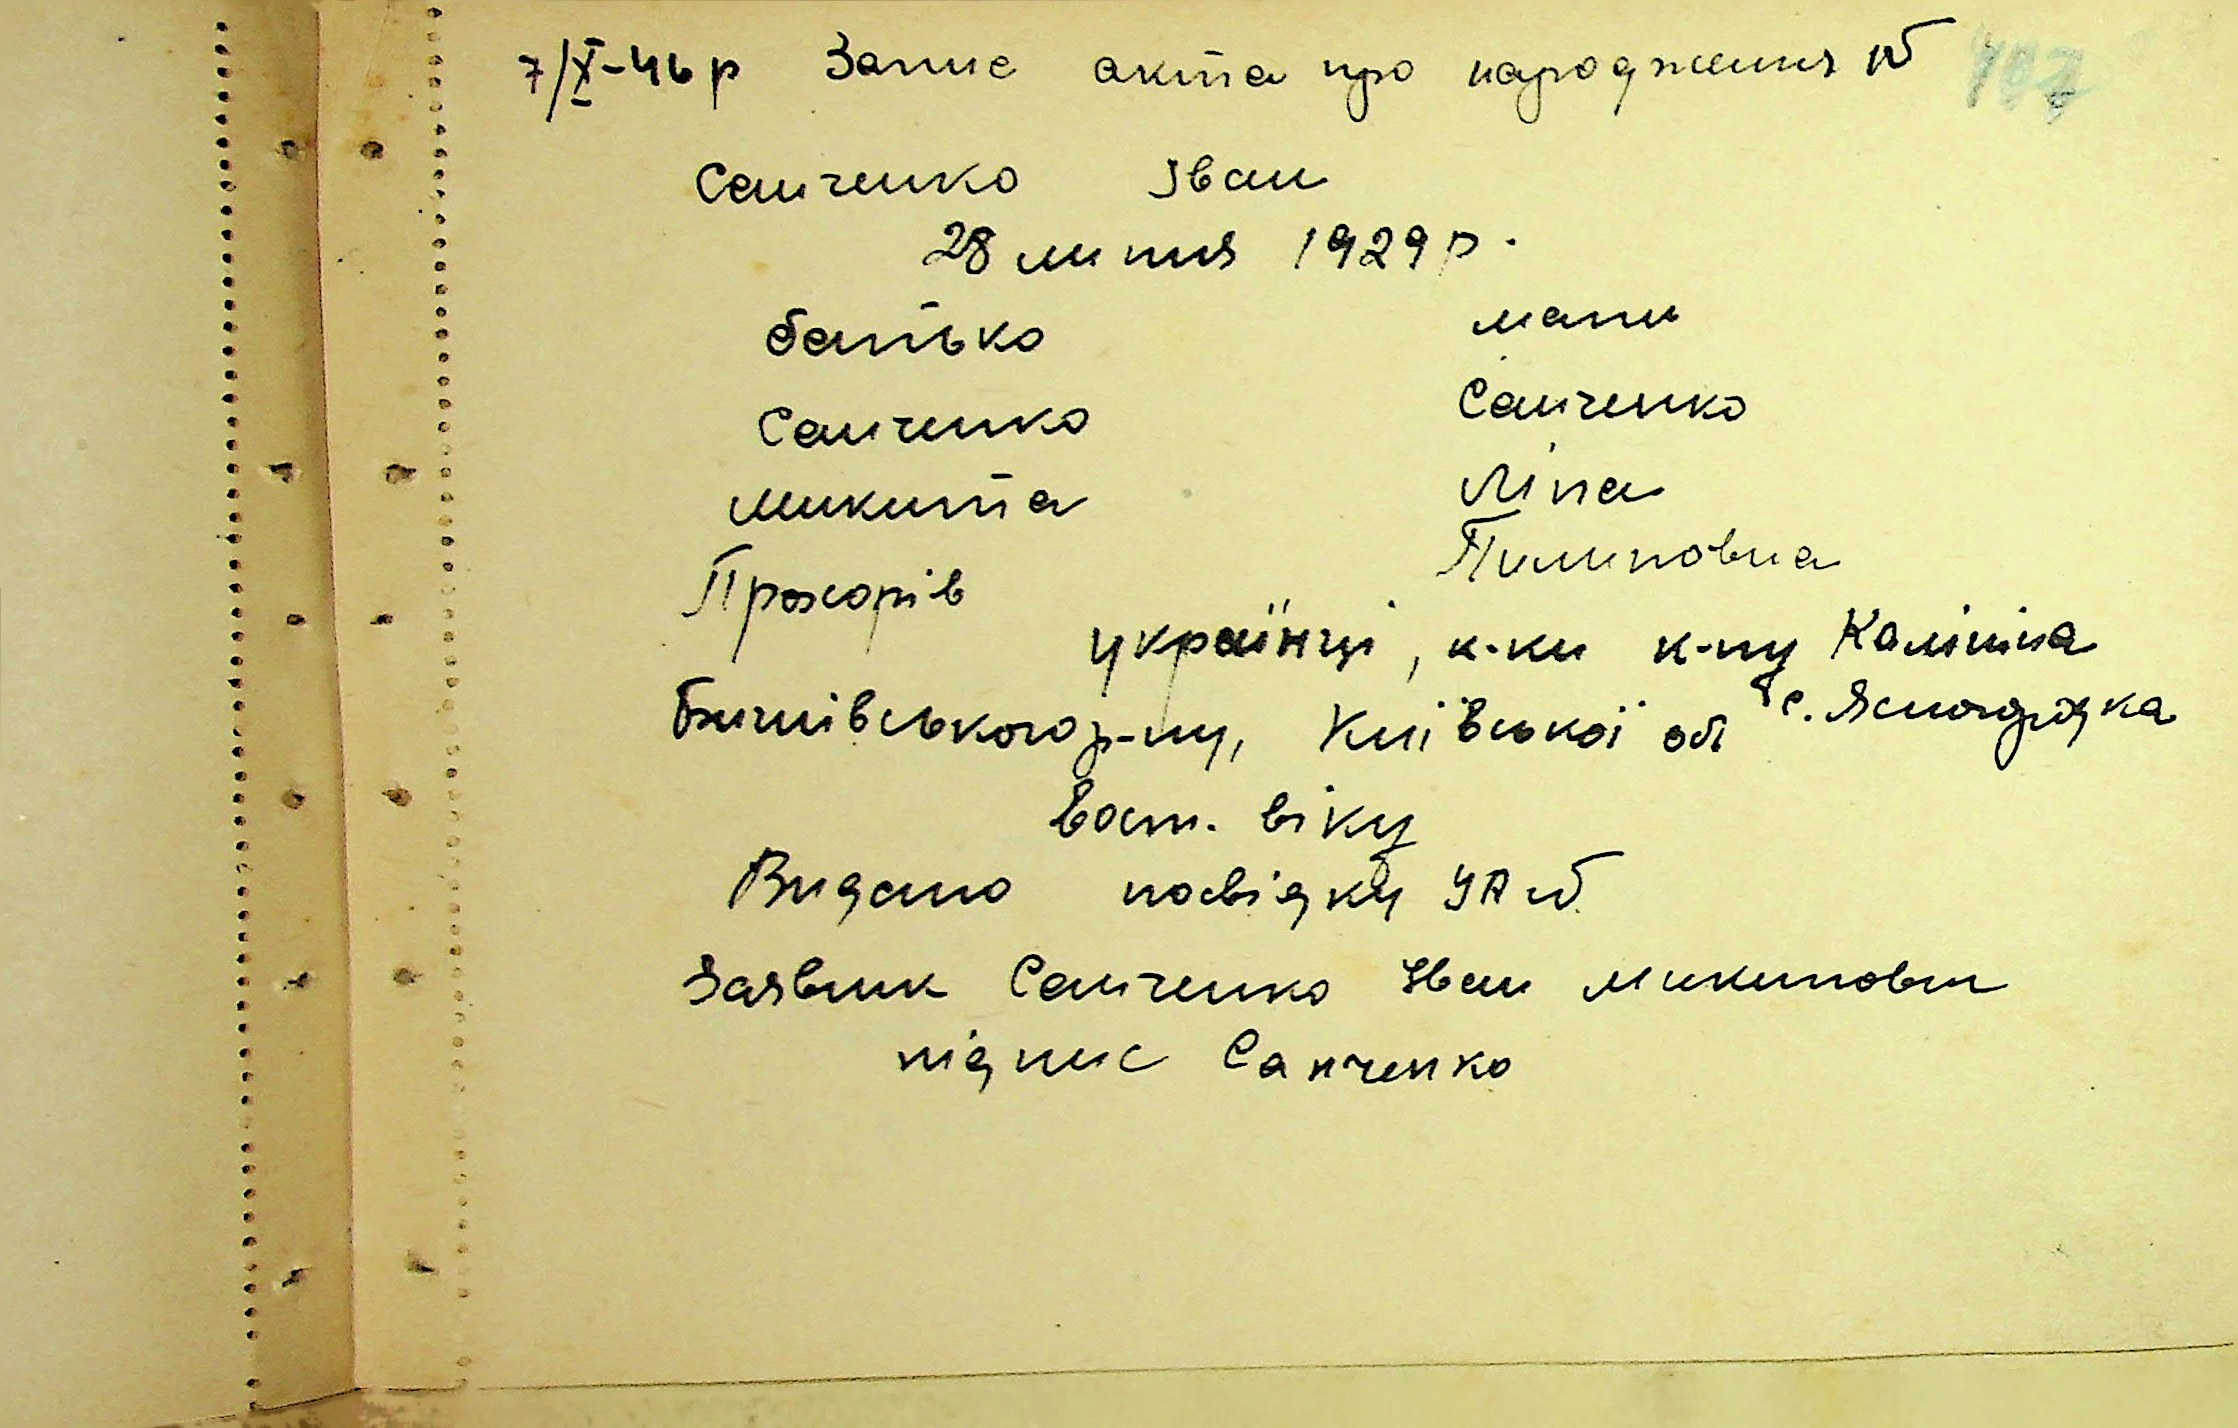 7/X-46 р Запис акта про народження №
Санченко Іван
28 липня 1929 р.
батько мати
Санченко Санченко
Микита Ліпа
Прохорів Пилиповна
українці, к-ки к-пу Калініна
Бишівського р-ну, Київської об с. Ясногородка
Вост. віку
Видано посвідку УА №
Заявник Санченко Іван Микитович
підпис Санченко